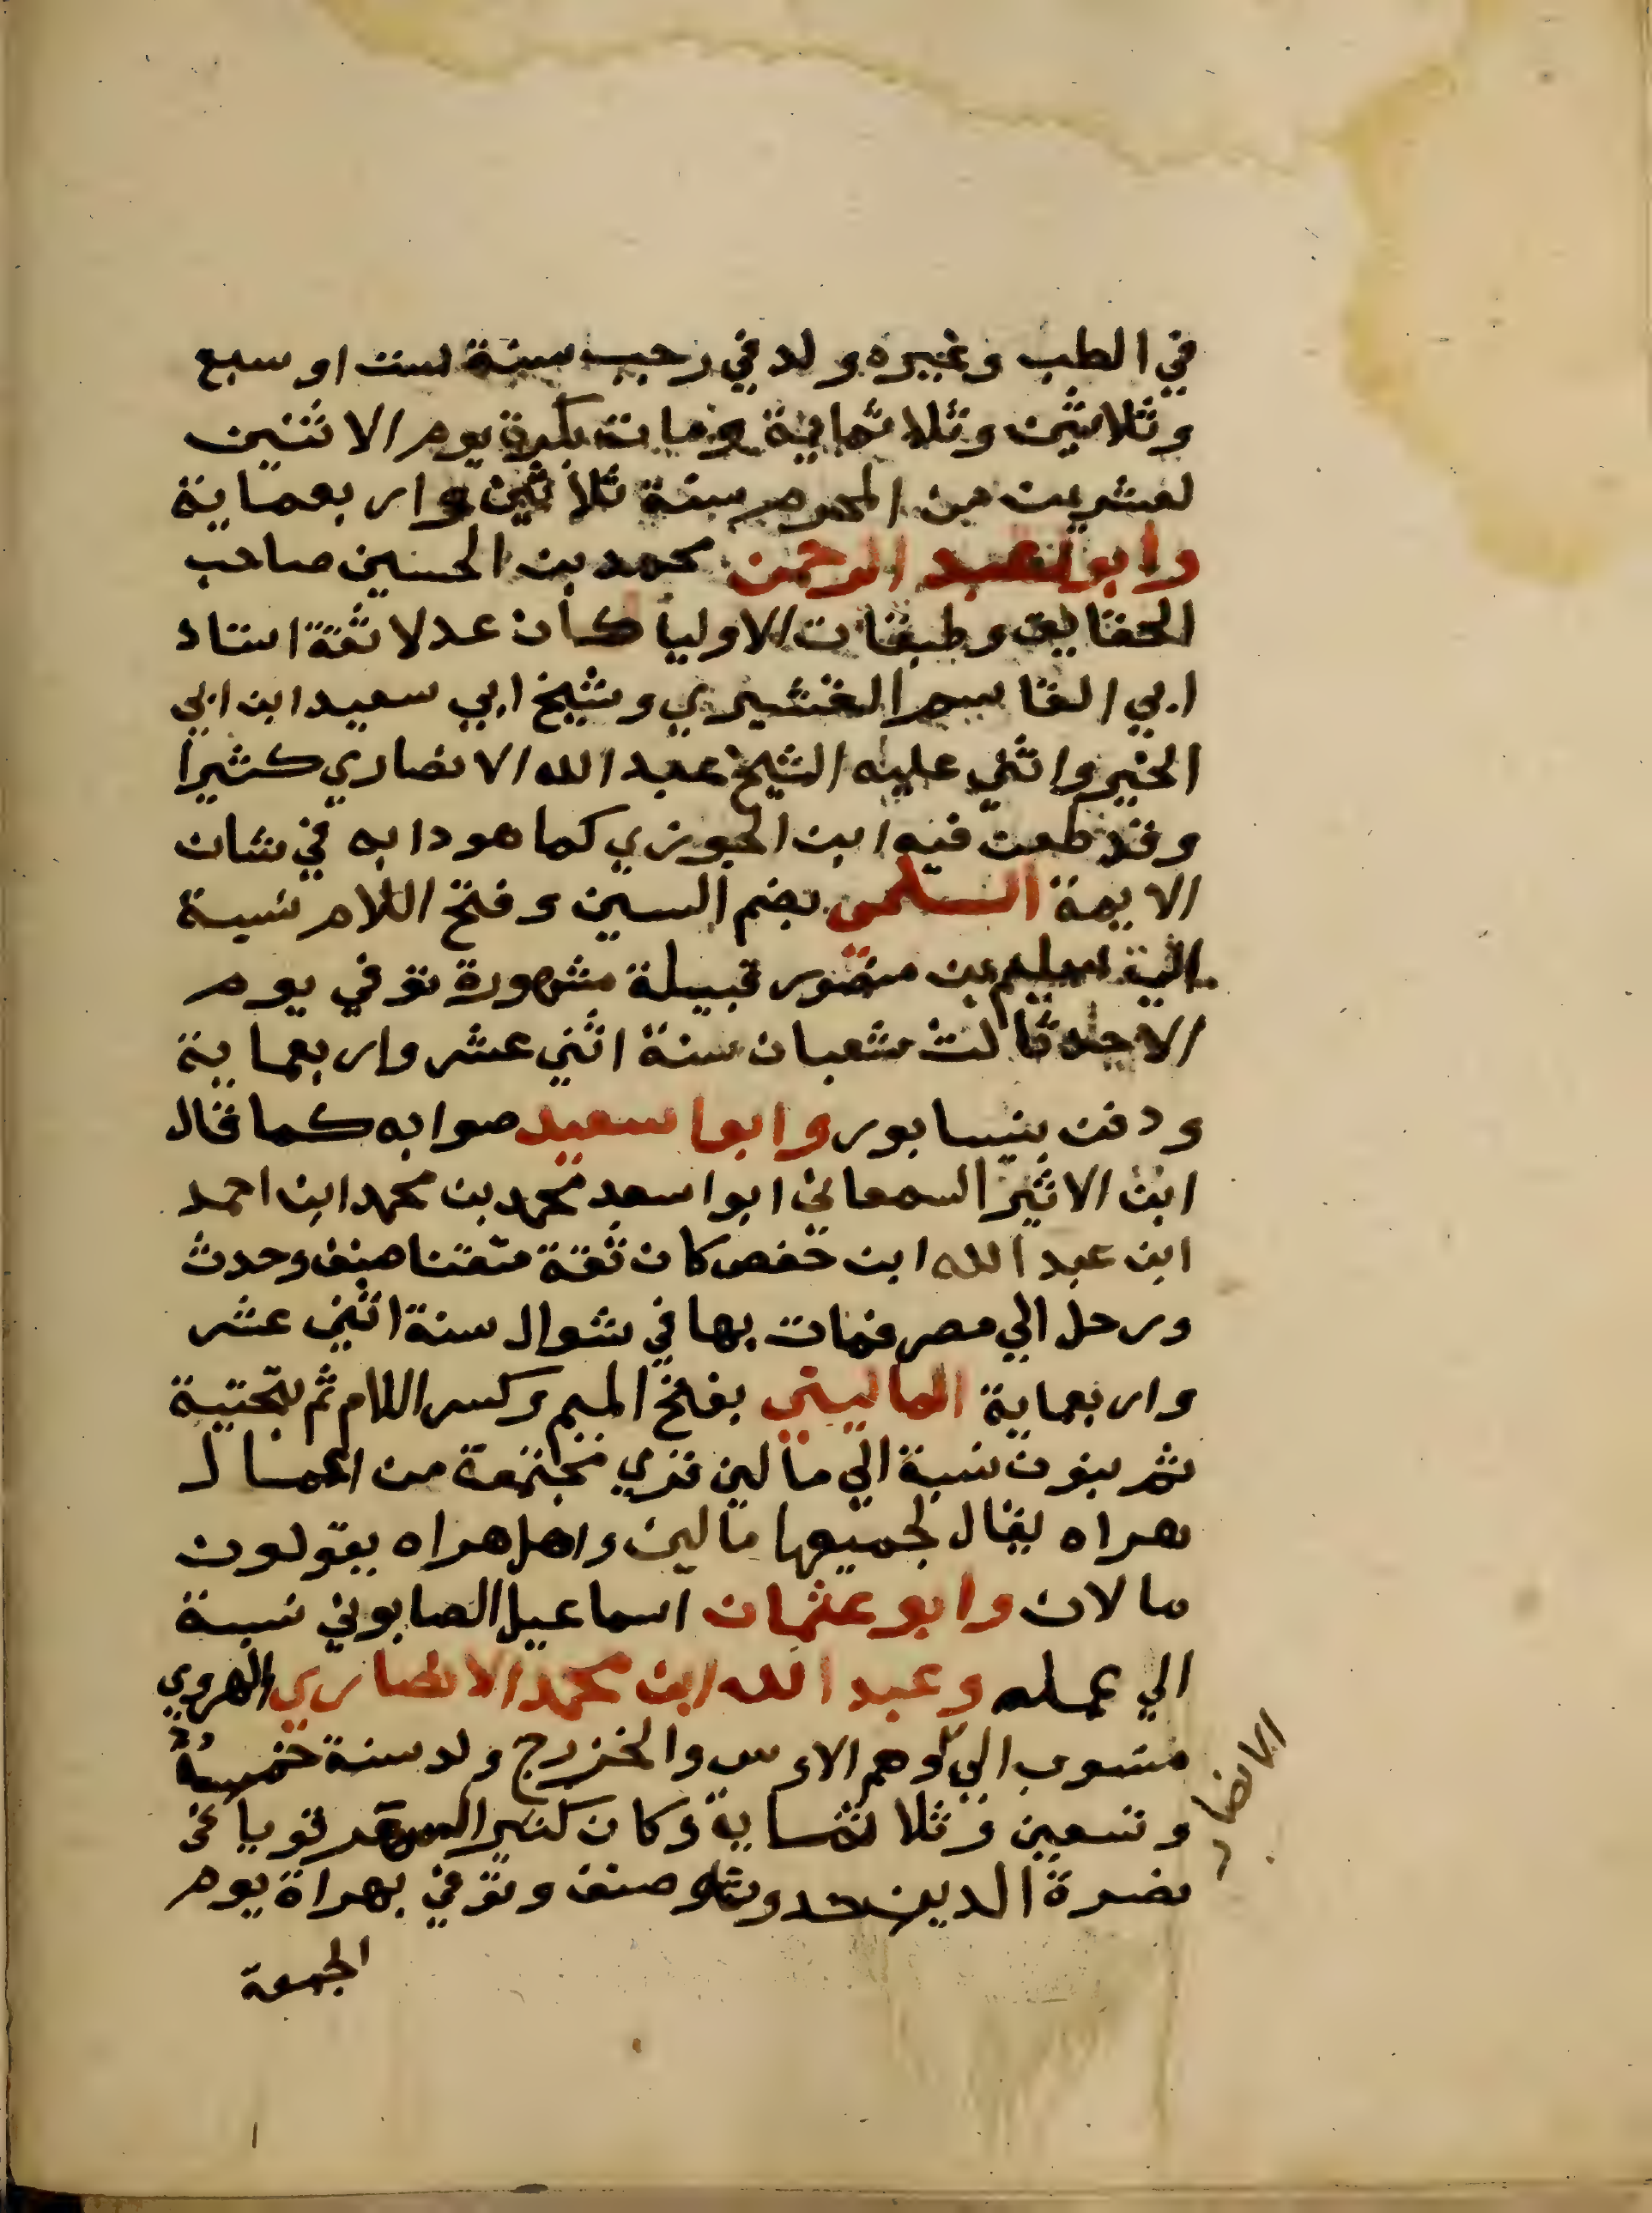 في الطب وغيره ولد في رجب سنة ست او سبع
وثلاثين وثلاثماية ومات بكرة يوم الاثنين
لعشرين من المحرم سنة ثلاثين واربعماية
وابو عبد الرحمن محمد بن الحسين صاحب
الحقايق وطبقات الاوليا كان عدلا ثقة استاد
ابي القاسم القشيري وشيخ ابي سعيد ابن ابي
الخير واثني عليه الشيخ عبد الله الانصاري كثيرا
وقد طعن فيه ابن الجوزي كما هو دابه في شان
الايمة السلمى بضم السين وفتح اللام نسبة
الي سليم بن منصور قبيلة مشهورة توفي يوم
الاحد ثالث شعبان سنة اثني عشر واربعماية
ودفن بنيسابور وابوا سعيد صوابه كما قال
ابن الاثير السمعاني ابوا سعد محمد بن محمد ابن احمد
ابن عبد الله ابن حفص كان ثقة متقنا صنف وحدث
ورحل الي مصر فمات بها في شوال سنة اثني عشر
واربعماية الماليني بفتح الميم وكسر اللام ثم بتحتية
ثم بنون نسبة الي مالين قري مجتمعة من اعمال
هراه يقال لجميعها مالين واهل هراه يقولون
مالان وابو عثمان اسماعيل الصابوني نسبة
الي عمله وعبد الله ابن محمد الانصاري الهروي
منسوب الي وهم الاوس والخزرج ولد سنة خمسة
الانصار
وتسعين وثلاثماية وكان كثير السهر قويا في
نصرة الدين حدث وصنف وتوفي بهراة يوم
الجمعة